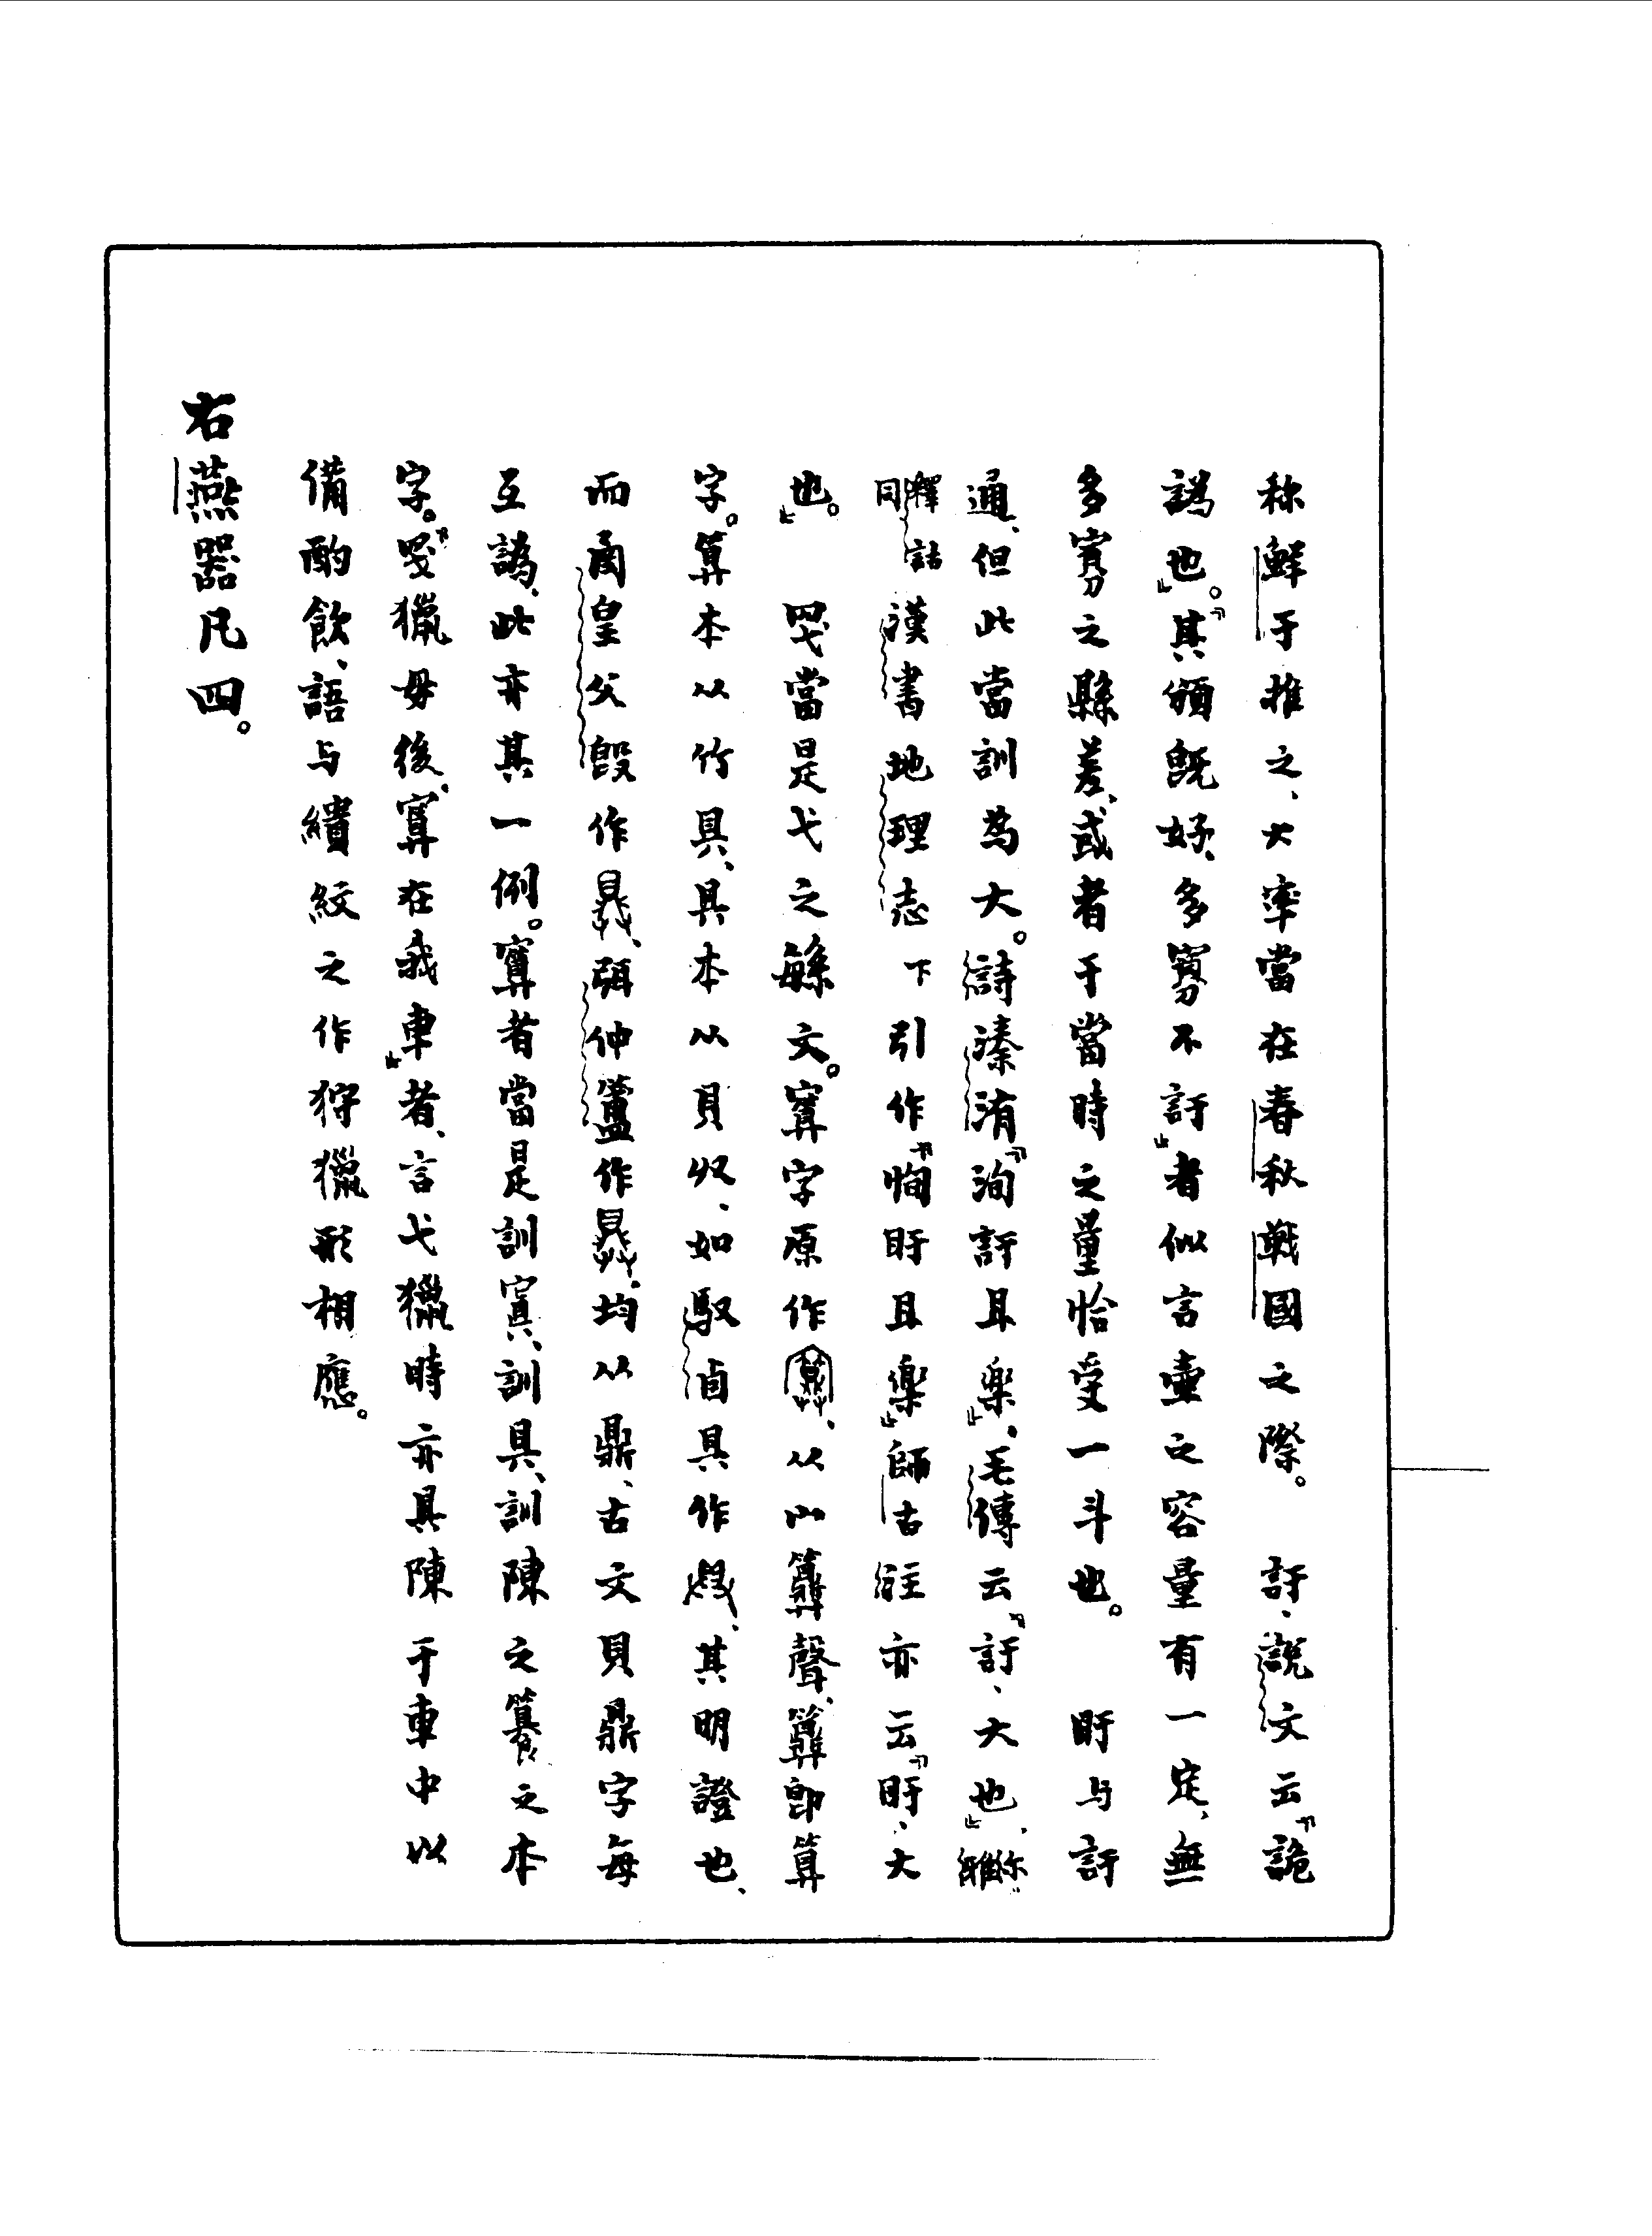 称鮮于推之、大率當在春秋戰國之際。　訏、說文云「詭
譌也」。「其頒旣好、多寡不訏」者似言壷之容量有一定、無
多寡之縣差、或者于當時之量恰受一斗也。　盱与訏
通、但此當訓為大。詩溱洧「洵訏且楽」、毛傳云「訏、大也」、尔雅
釋詁同漢書地理志下引作「恂盱且樂」師古注亦云「盱、大
也」。　㽙當是弋之緐文。寡字原作、从宀聲、即算
字。算本从竹具、具本从貝収、如馭卣具作、其明證也、
而圅皇父𣪘作、弭仲簠作、均从鼎、古文貝鼎字每
互譌、此亦其一例。者當是訓寘、訓具、訓陳之籑之本
字。「獵毋後、在我車」者、言弋獵時亦具陳于車中以
備酌飲、語与繢紋之作狩獵形相應。
右燕器凡四。